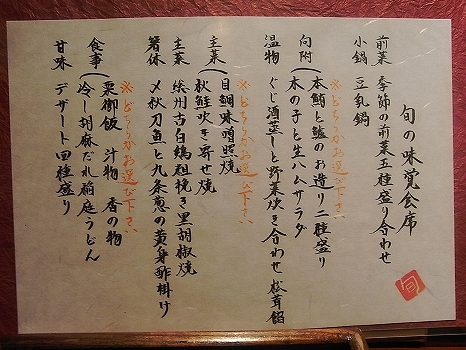 旬の味覚会席
前菜 季節の前菜五種盛り合わせ
小鍋 豆乳鍋
※どちらかお選び下さい
向附 本鮪と鱧のお造り二種盛り
木の子と生ハムサラダ
温物 ぐじ酒蒸しと野菜炊き合わせ 松茸餡
※どちらかお選び下さい
主菜 目鯛味噌焼
秋鮭吹き寄せ焼
主菜 總州古白鶏粗挽き黒胡椒焼
箸休 〆秋刀魚と九条葱の黄身酢掛け
※どちらかお選び下さい
食事 栗御飯 汁物 香の物
冷し胡麻だれ稲庭うどん
甘味 デザート四種盛り
旬